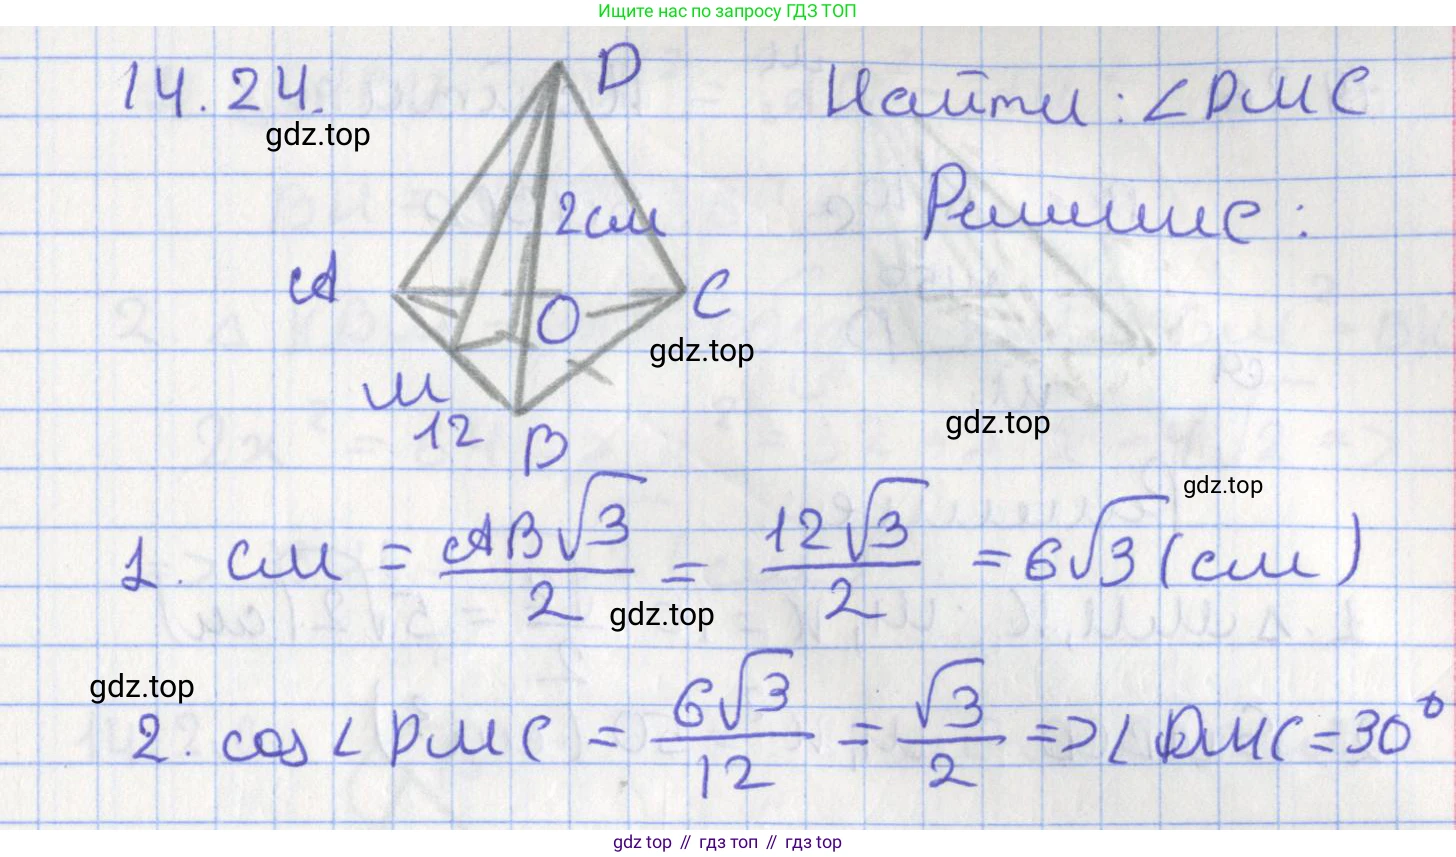 Ищите нас по запросу ГДЗ ТОП
14.24.
gdz.top
D
Найти: ∠DMC
Решение:
2см
A
O
C
gdz.top
M
12
B
gdz.top
gdz.top
1. CM = AB√3/2 = 12√3/2 = 6√3 (см)
gdz.top
gdz.top
2. cos∠DMC = 6√3/12 = √3/2 => ∠DMC = 30°
gdz top // гдз топ // гдз top